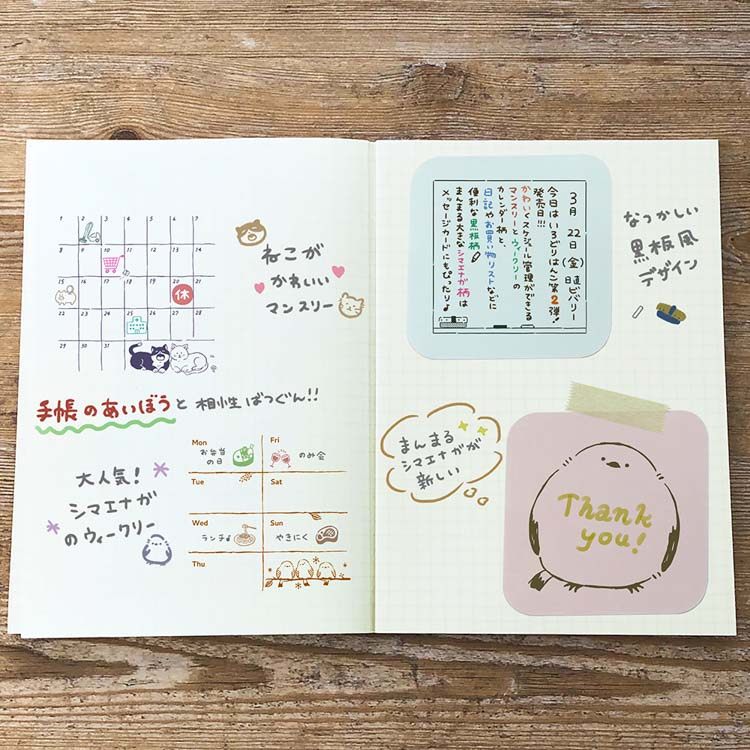 1 2 3 4 5 6 7
8 9 10 11 12 13 14
15 16 17 18 19 20 21
休
22 23 24 25 26 27 28
29 30 31
ねこが
かわいい
マンスリー
手帳のあいぼうと相性ばつぐん!!
大人気!
シマエナガ
のウィークリー
Mon
お弁当
の日
Fri
のみ会
Tue
Sat
Wed
ランチ
Sun
やきにく
Thu
3月22日(金)日直ビバリー
今日はいろどりはんこ第2弾!
発売日!!!
かわいくスケジュール管理ができる
マンスリーとウィークリーの
カレンダー柄と、
日記やお買い物リストなどに
便利な黒板柄
まんまる大きなシマエナガ柄は
メッセージカードにもぴったり♪
なつかしい
黒板風
デザイン
まんまる
シマエナガが
新しい
Thank
you!